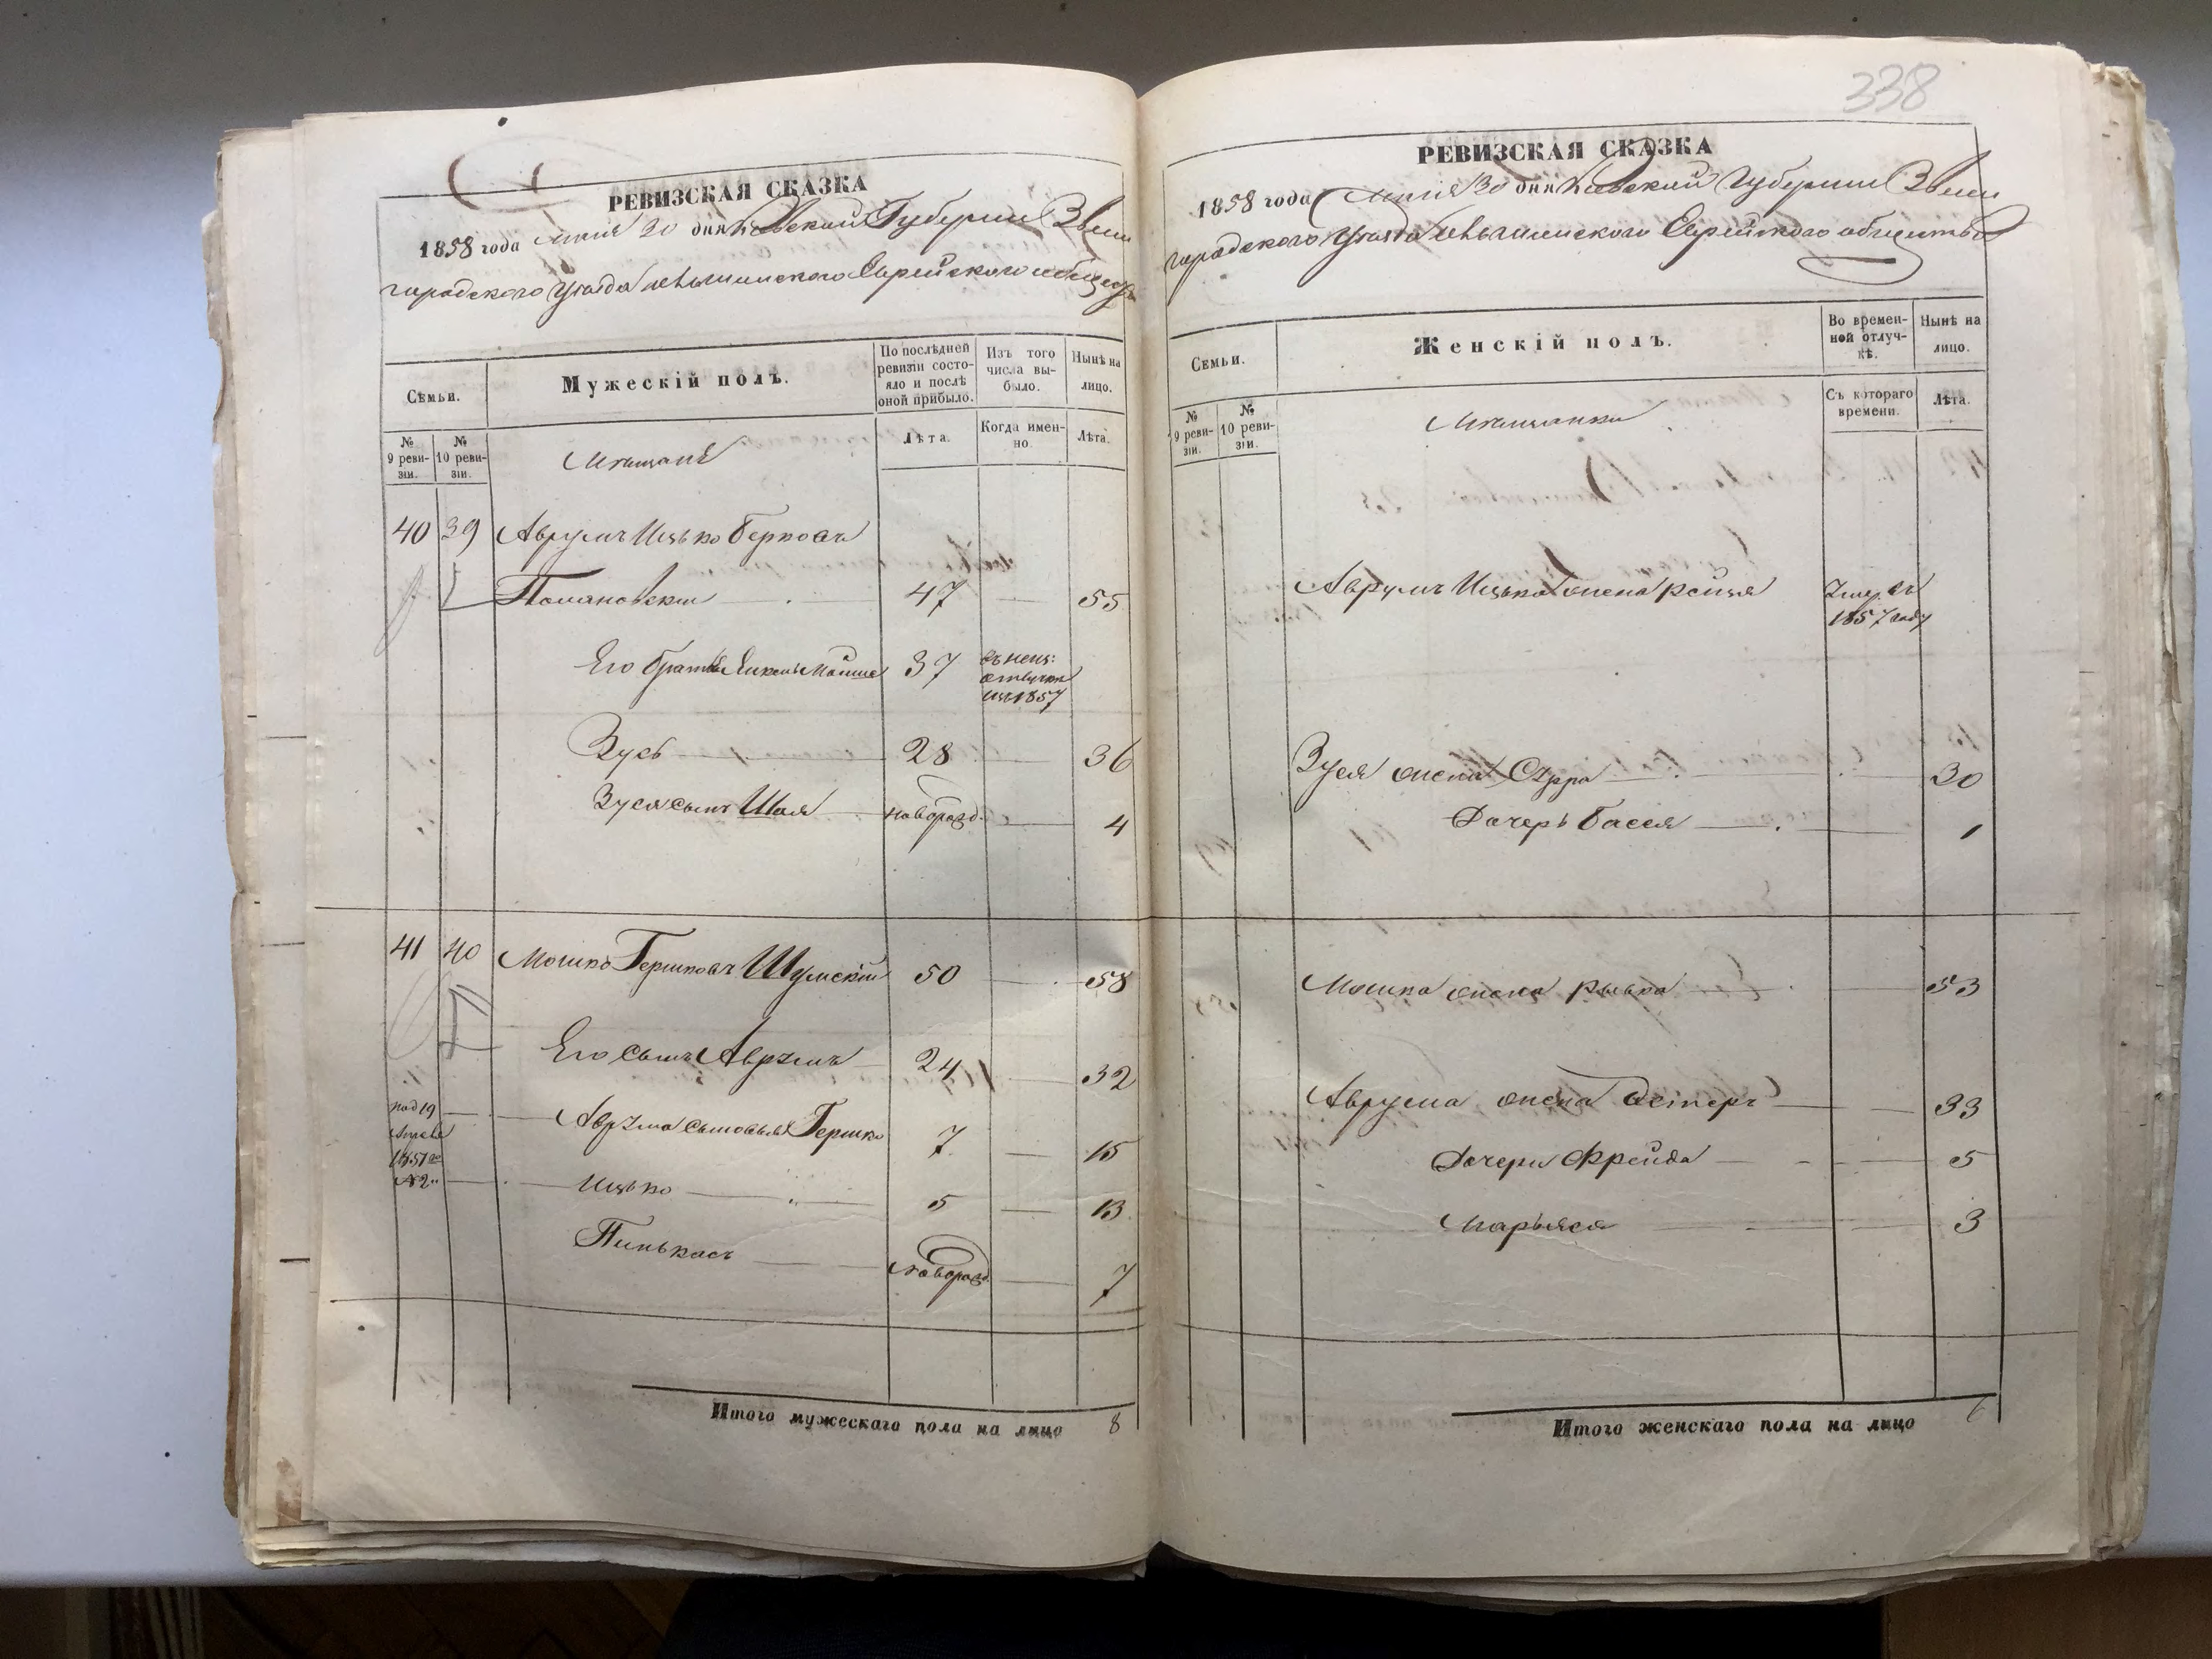 РЕВИЗСКАЯ СКАЗКА
1858 года 20 дня Кіевской Губерніи Звени
городского Уѣзда Еврейского общества
Семьи.
Мужескій полъ.
По послѣдней
ревизіи состо-
яло и послѣ
оной прибыло.
Изъ того
числа вы-
было.
Нынѣ на
лицо.
№
9 реви-
зіи.
№
10 реви-
зіи.
Мѣщанѣ
Лѣта.
Когда имен-
но.
Лѣта.
40 39 Аврумъ Ицько Берковъ
47 — 55
Его братья 37
1857
Зусь — 28 — 36
Зуся сынъ Шая — новорожд. — 4
41 40 Мошко Гершковъ Шумскій 50 — 58
Его сынъ Аврумъ — 24 — 32
Аврума сыновья Гершко 7 — 15
№ 2
Ицько — 5 — 13
Пинькасъ — новорожд. — 7
Итого мужескаго пола на лицо 8
338
РЕВИЗСКАЯ СКАЗКА
1858 года 30 дня Кіевской Губерніи Звени
городского Уѣзда Еврейского общества
Семьи.
Женскій полъ.
Во времен-
ной отлуч-
кѣ.
Нынѣ на
лицо.
№
9 реви-
зіи.
№
10 реви-
зіи.
Мѣщанки
Съ котораго
времени.
Лѣта.
Аврумъ Ицька жена Рейзя
1857 году
Зуся жена Сурра — 30
Дочерь Басся — 1
Мошка жена Рывка — 53
Аврума жена Эстеръ — 33
Дочери Фрейда — 5
Марьяся — 3
Итого женскаго пола на лицо 6